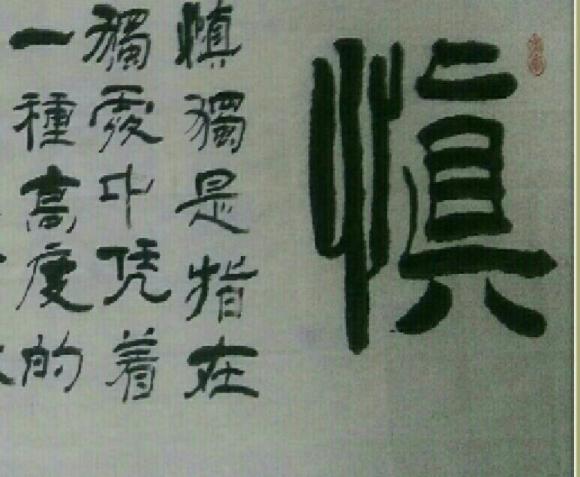 慎
慎獨是指在
獨處中凭着
一種高度的